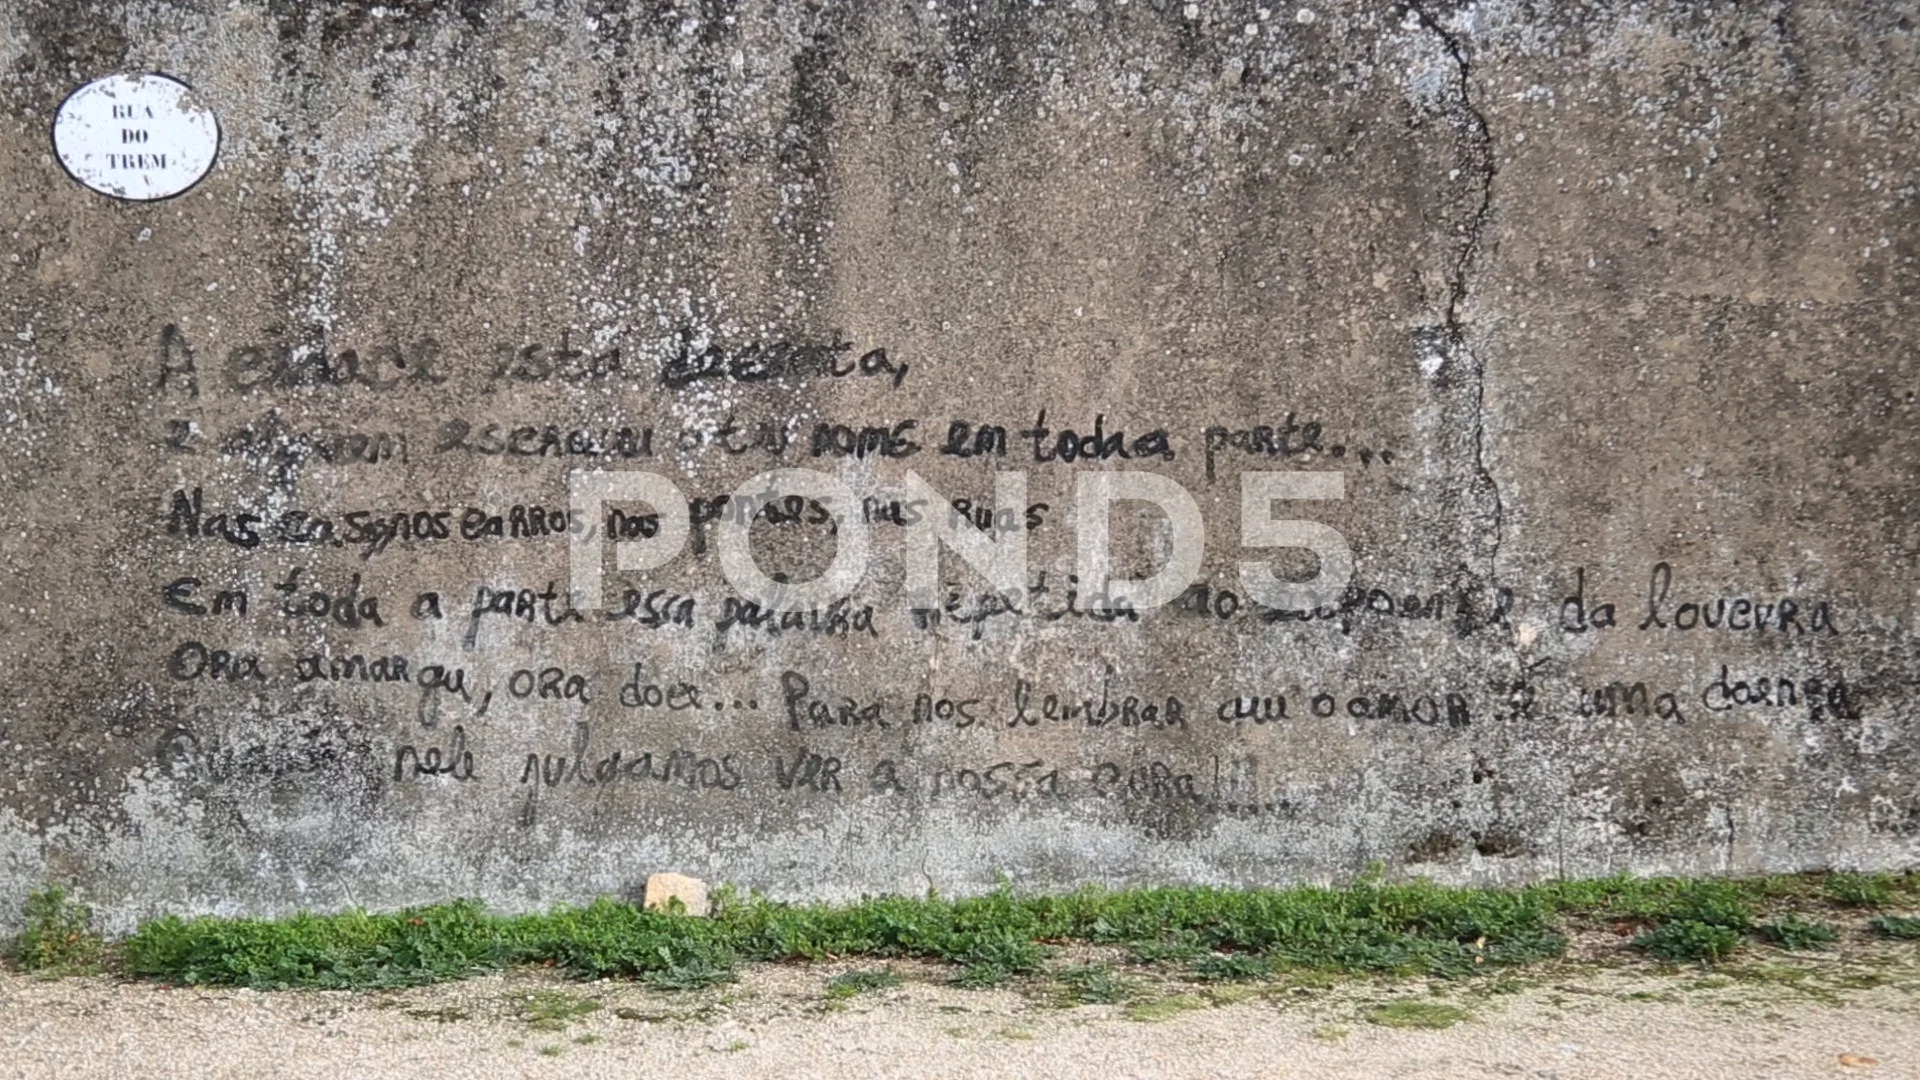 RUA
DO
TREM
A cidade está deserta,
e alguem escreveu o teu nome em toda a parte...
Nas casas, nos carros, nas pontes, nas ruas
Em toda a parte essa palavra repetida ao expoente da loucura
Ora amarga, ora doce... Para nos lembrar que o amor é uma doença
Quando nele julgamos ver a nossa cura!!!...
POND5